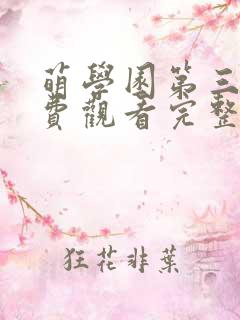 萌學園第三
費觀看完整
狂花非葉